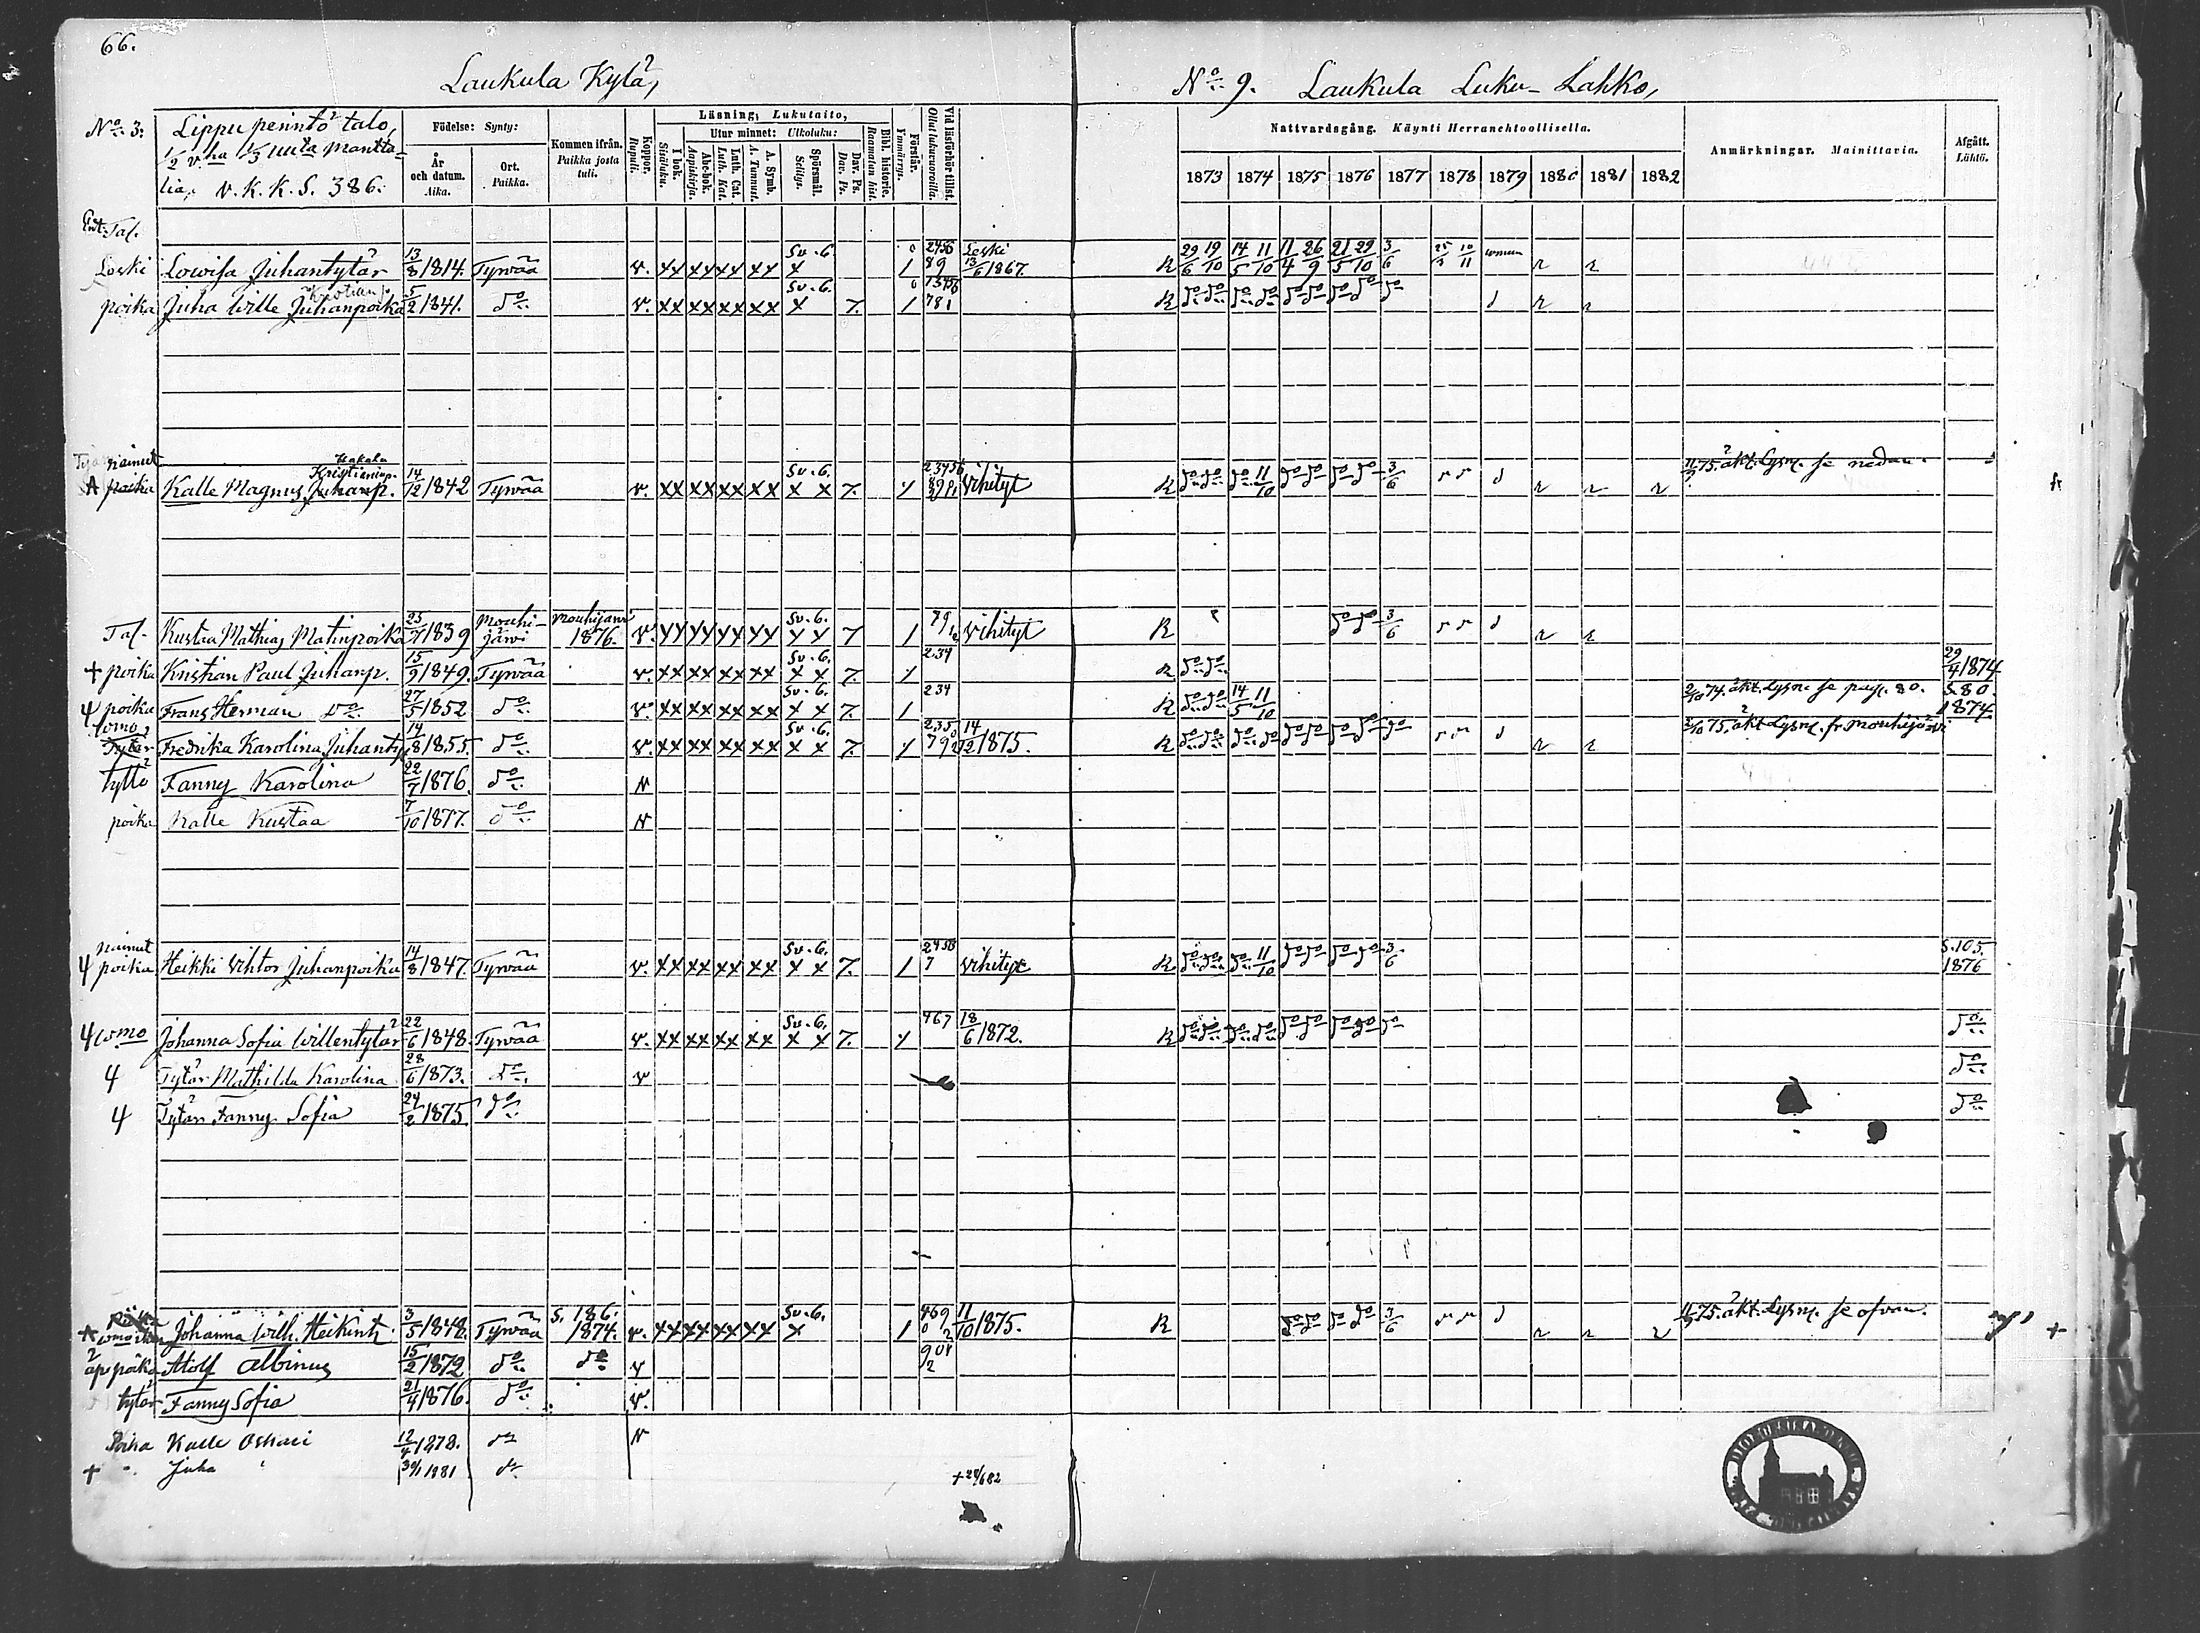 66.
Laukula Kylä,
No 9. Laukula Luku-Lahko,
No 3: Lippu perintö talo,
1/2 v.ha 1/3 uuta mantta-
lia, v. K. K. S. 386.
Födelse: Synty:
År och datum. Aika.
Ort. Paikka.
Kommen ifrån. Paikka josta tuli.
Koppor. Rupuli.
Läsning, Lukutaito,
I bok. Sisäluku.
Utur minnet: Ulkoluku:
Abc-bok. Aapiskirja.
Luth. Cat. Luth. Kat.
A. Symb. A. Tunnust.
Spörsmål. Selitys.
Dav. Ps. Dav. Ps.
Bibl. historie. Raamatun hist.
Förstår. Ymmärrys.
Vid läsförhör tillst. Ollut lukuvuoroilla.
Nattvardsgång. Käynti Herranehtoollisella.
1873 1874 1875 1876 1877 1878 1879 1880 1881 1882
Anmärkningar. Mainittavia.
Afgått. Lähtö.
Tal.
Leski Lowisa Juhantytär 13/8 1814. Tyrwää v. xx xx xx xx Sv. 6. x Leski 13/6 1867. R 29/6 19/10 14/5 11/10 11/4 26/9 21/5 29/10 3/6
poika Juha Wille Juhanpoika 5/2 1841. do v. xx xx xx xx Sv. 6. x 7. / 781 R do do do do do do do do do
nainut
poika Kalle Magnus Juhanp. 14/12 1842 Tyrwää v. xx xx xx xx Sv. 6. x x 7. vihityt R do do do 11/10 do do do do 3/6 äkt. Lysn. se nedan.
Tal. Kustaa Mathias Matinpoika 25/7 1839 Mouhi-järwi Mouhijärwi 1876. v. xx xx xx xx Sv. 6. x x 7 / vihityt R do do 3/6
+ poika Kristian Paul Juhanp. 15/9 1849. Tyrwää v. xx xx xx xx Sv. 6. x x 7. 234 R do do 29/4 1874
4 poika Frans Herman do 27/5 1852 do v. xx xx xx xx Sv. 6. x x 7. / 234 R do do 14/5 11/10 2/10 74. äkt. Lysn. se pag. 80. S. 80. 1874
womo
Tytär Fredrika Karolina Juhanty 14/8 1855. do v. xx xx xx xx Sv. 6. x x 7. 14/12 1875. R do do do do do do do do do äkt. Lysn. fr Mouhijärvi
tyttö Fanny Karolina 22/7 1876. do v
poika Kalle Kustaa 7/10 1877. do v
nainut
4 poika Heikki Vihtor Juhanpoika 14/8 1847. Tyrwää v. xx xx xx xx Sv. 6. x x 7. / 7 vihityt R do do do 11/10 do do do do 3/6 S. 105. 1876
4 womo Johanna Sofia Willentytär 22/6 1848. Tyrwää v. xx xx xx xx Sv. 6. x x 7. 467 18/6 1872. R do do do do do do do do do do
4 Tytär Mathilda Karolina 28/6 1873. do v do
4 Tytär Fanny Sofia 24/2 1875 do do
Johanna Wilh. Heikint. 3/5 1848. Tyrwää S. 186. 1874. v. xx xx xx xx Sv. 6. x / 469 11/10 1875. R do do do do 3/6 äkt. Lysn. se ofvan.
äp. poika Atolf Albinus 15/2 1872 do do v
tytär Fanny Sofia 21/4 1876. do v.
Poika Kalle Oskari 12/4 1878. do v
+ Juha 1881 do